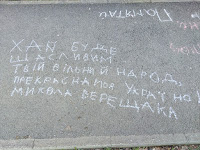 Пом'ятай
ХАЙ БУДЕ
ЩАСЛИВИМ
ТВІЙ ВІЛЬНИЙ НАРОД,
ПРЕКРАСНА МОЯ УКРАЇНО
МИКОЛА ВЕРЕЩАКА